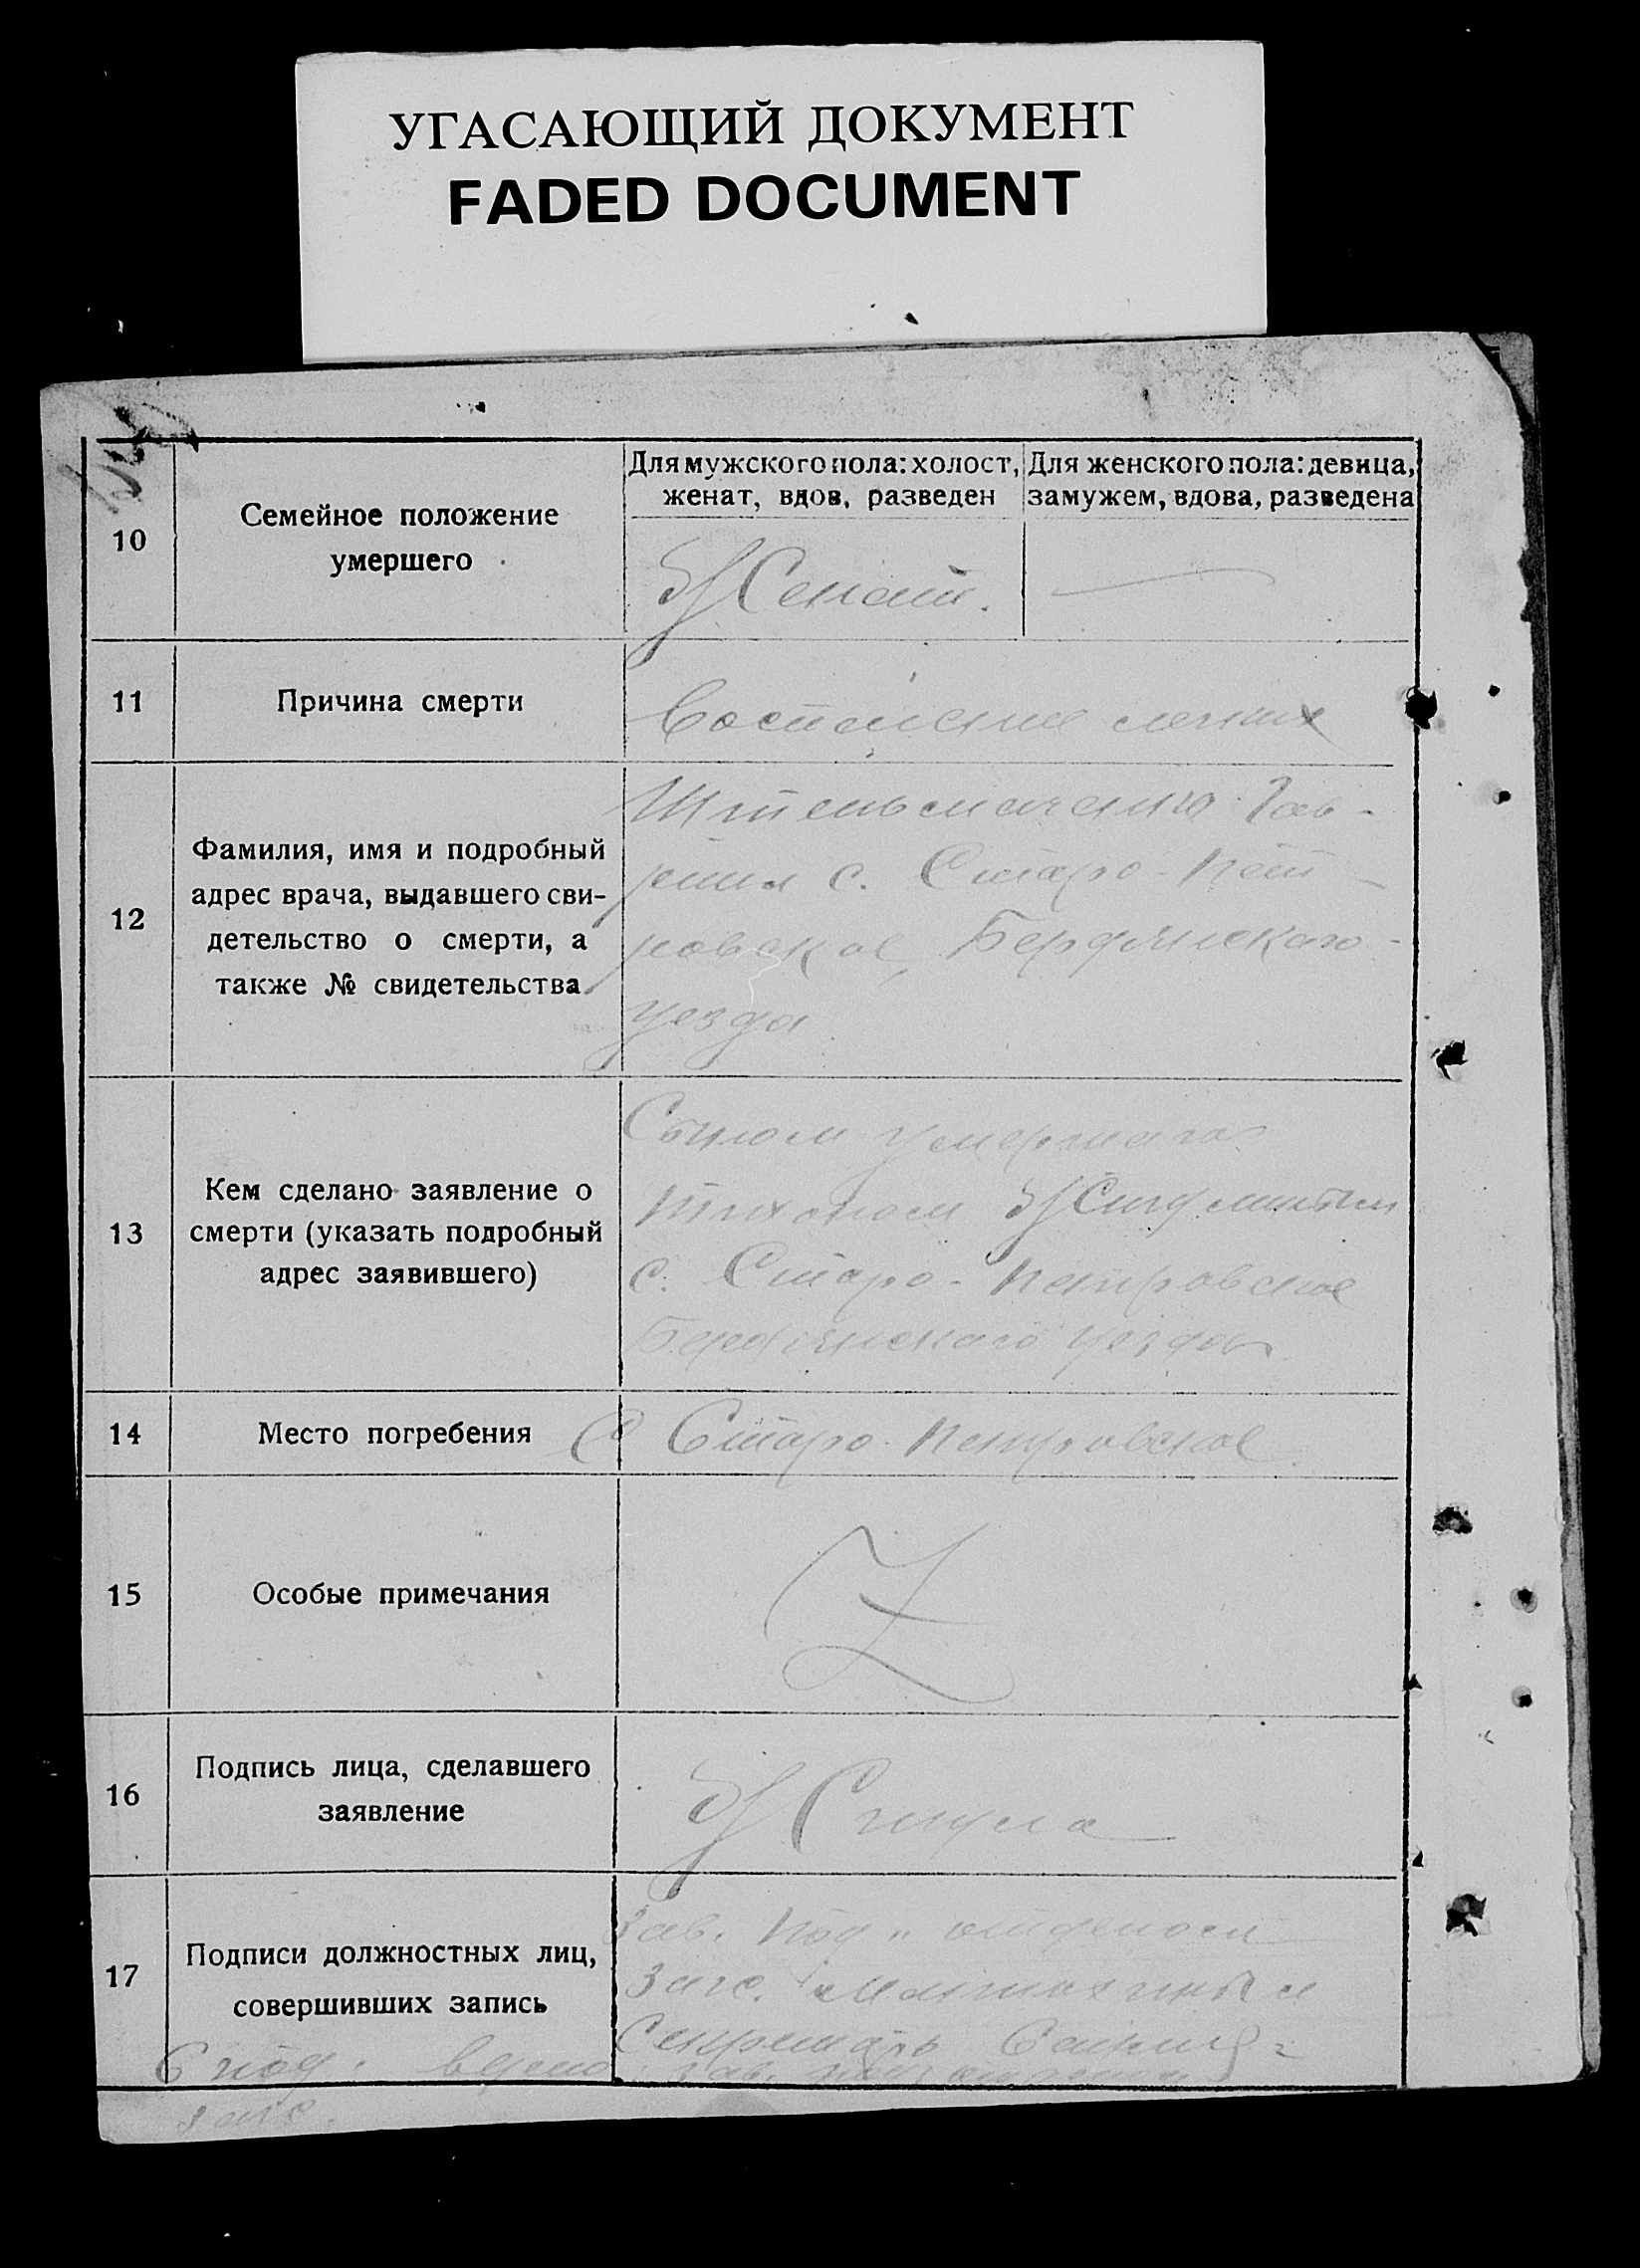 УГАСАЮЩИЙ ДОКУМЕНТ
FADED DOCUMENT
10
Семейное положение
умершего
Для мужского пола: холост,
женат, вдов, разведен
Для женского пола: девица,
замужем, вдова, разведена
Женат.
11
Причина смерти
Воспаление легких
12
Фамилия, имя и подробный
адрес врача, выдавшего сви-
детельство о смерти, а
также № свидетельства
Гав-
с. Старо-Пет-
ровское Бердянского
уезда
13
Кем сделано заявление о
смерти (указать подробный
адрес заявившего)
Сыном умершаго
Тихоном
с. Старо-Петровское
Бердянского уезда
14
Место погребения
С Старо-Петровское
15
Особые примечания
16
Подпись лица, сделавшего
заявление
17
Подписи должностных лиц,
совершивших запись
Зав. Под. отделом
Загс.
Секретарь
С под. верно
загс.